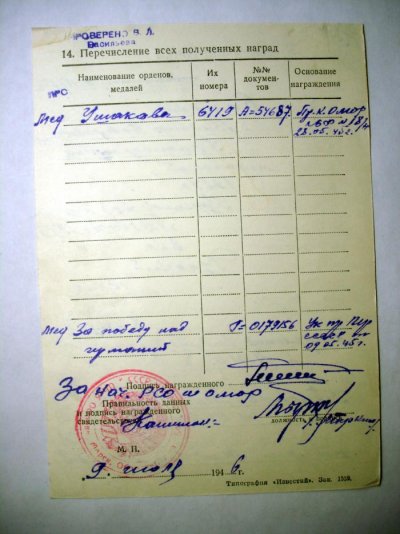 ПРОВЕРЕНО В. Л.
Васильева
14. Перечисление всех полученных наград
Наименование орденов, медалей
Их номера
№№ документов
Основание награждения
Мед Ушакова 6419 А=54687 Пр. к. ОМОР
28.05.45 г.
Мед За победу над 0179156 Ук пр
германией 09.05.45 г.
Подпись награжденного
За Нач. РСО ОМОР
Правильность данных
и подпись награжденного
свидетельствую
должность
М. П.
9. июля 1946 г.
Типография «Известий». Зак. 1559.